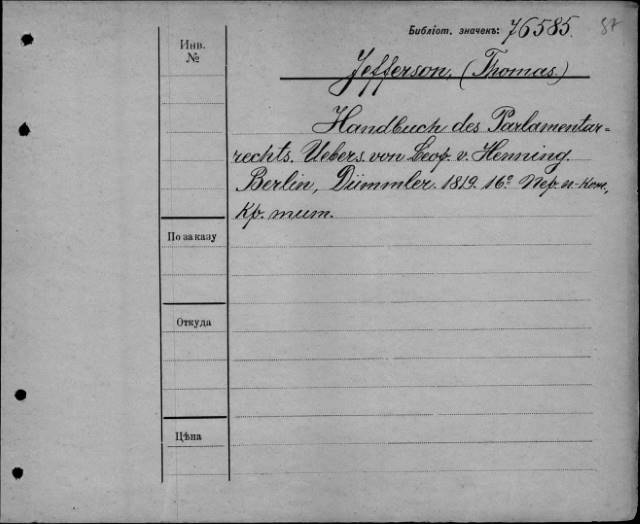 Библіот. значекъ: 76585. 87
Инв.
№
Jefferson, (Thomas)
Handbuch des Parlamentar=
rechts. Uebers. von Leop. v. Henning.
Berlin, Dümmler. 1819. 16° Пер. и-кож,
Кр. тит.
По заказу
Откуда
Цѣна